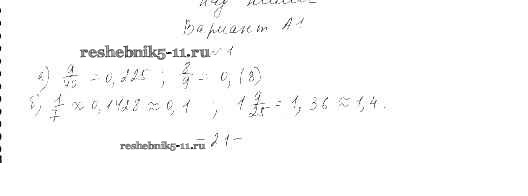 Вариант А1
reshebnik5-11.ru №1
а) 9/40 = 0,225 ; 8/9 = 0,(8)
б) 1/7 ≈ 0,1428 ≈ 0,1 ; 1 9/25 = 1,36 ≈ 1,4.
reshebnik5-11.ru - 21 -